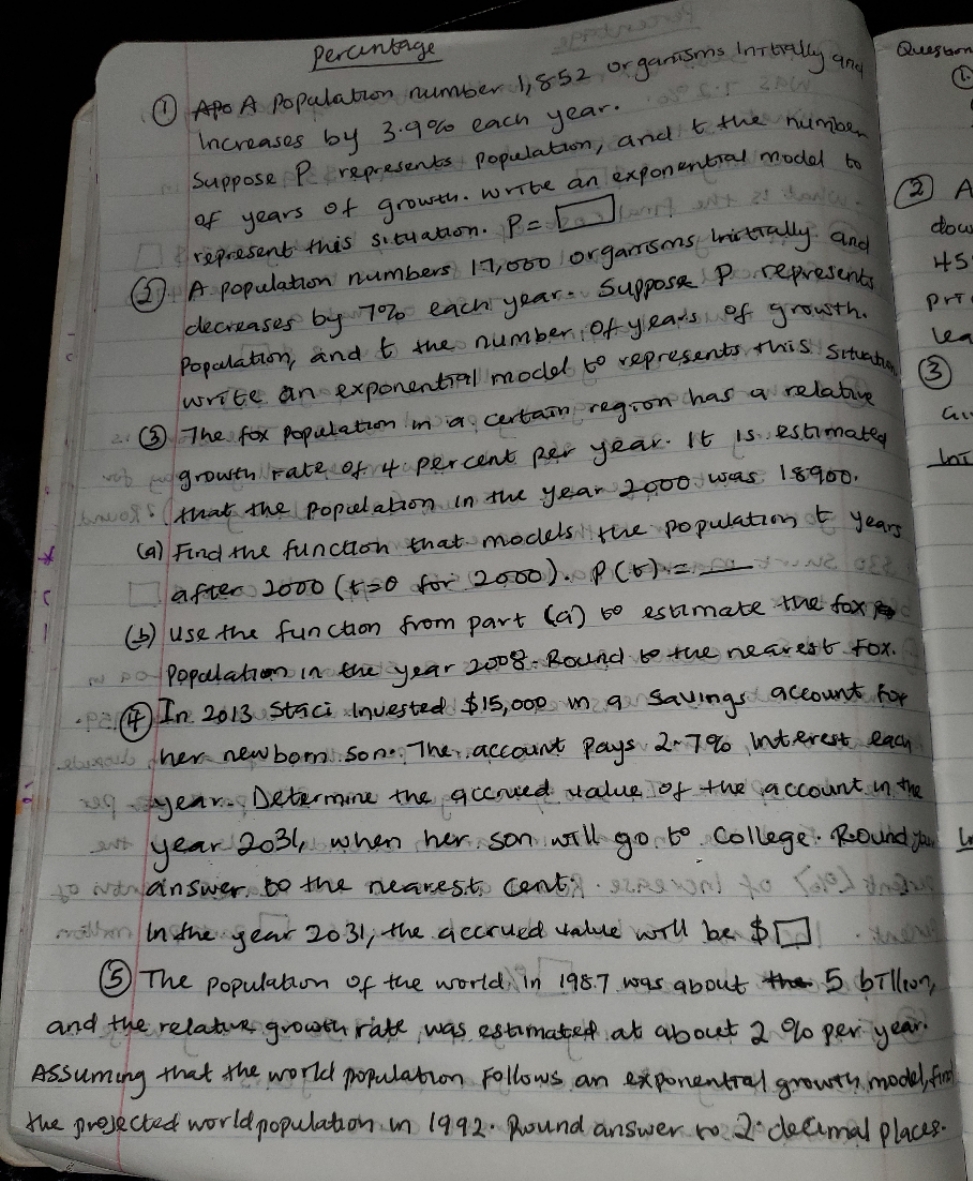 Percentage
① A Population number 1,852 organisms Initially and
Increases by 3.9% each year.
Suppose P represents population, and t the number
of years of growth. write an exponential model to
represent this situation. P=
② A population numbers 17,000 organisms initially and
decreases by 7% each year. Suppose P represents
Population, and t the number of years of growth.
write an exponential model to represents this situation
③ The fox population in a certain region has a relative
growth rate of 4 percent per year. It is estimated
that the population in the year 2000 was 18900.
(a) Find the function that models the population t years
after 2000 (t=0 for 2000). P(t) = __
(b) use the function from part (a) to estimate the fox
Population in the year 2008. Round to the nearest fox.
④ In 2013 Staci Invested $15,000 in a savings account for
her newborn son. The account pays 2.7% Interest each
year. Determine the accrued value of the account in the
year 2031, when her son will go to college. Round your
answer to the nearest cent.
In the year 2031, the accrued value will be $
⑤ The population of the world in 1987 was about 5 billion,
and the relative growth rate was estimated at about 2 % per year.
Assuming that the world population follows an exponential growth model, find
the projected world population in 1992. Round answer to 2 decimal places.
Question
①
② A
dow
45
pri
lea
③
Int